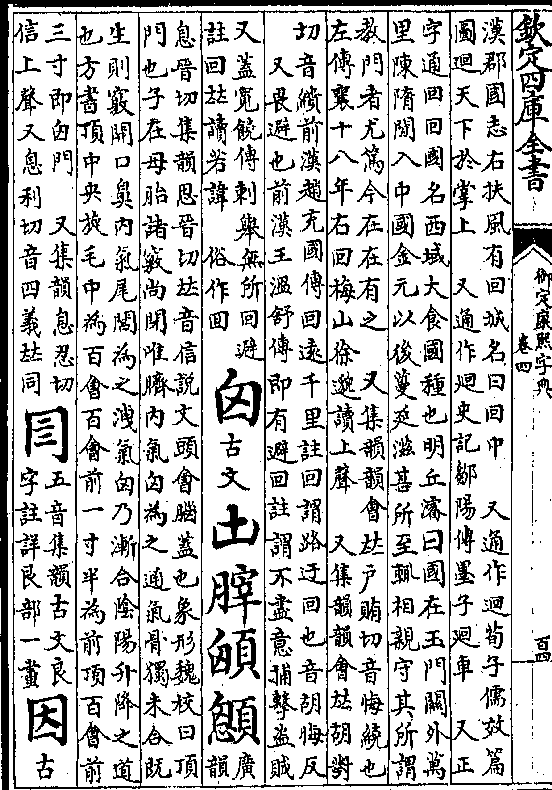 欽定四庫全書
御定康熙字典
卷四
百四
漢郡國志右扶風有回城名曰回中　又通作迴荀子儒效篇
圖迴天下於掌上　又通作廻史記鄒陽傳墨子廻車　又正
字通回回國名西域大食國種也明丘濬曰國在玉門關外萬
里陳隋間入中國金元以後蔓延滋甚所至輒相親守其所謂
教門者尤篤今在在有之　又集韻韻會𠀤戶賄切音悔繞也
左傳襄十八年右回梅山徐邈讀上聲　又集韻韻會𠀤胡對
切音繢前漢趙充國傳回遠千里註回謂路迂回也音胡悔反
又畏避也前漢王溫舒傳即有避回註謂不盡意捕擊盜賊
又蓋寬饒傳刺舉無所回避
註回𠀤讀若諱　俗作囘
囟古文䪿顖廣韻
息晉切集韻思晉切𠀤音信說文頭會腦蓋也象形魏校曰頂
門也子在母胎諸竅尚閉唯臍內氣囟為之通氣骨獨未合既
生則竅開口鼻內氣尾閭為之洩氣囟乃漸合陰陽升降之道
也方書頂中央旋毛中為百會百會前一寸半為前頂百會前
三寸即囟門　又集韻息忍切
信上聲又息利切音四義𠀤同
五音集韻古文良
字註詳艮部一畫
因古